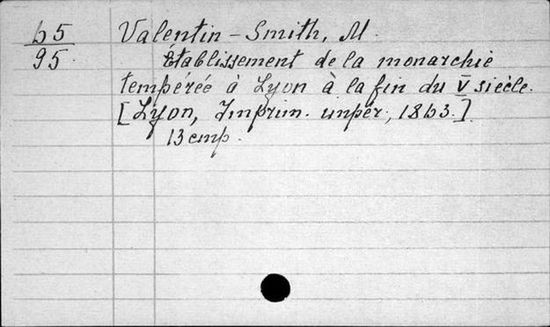 65
95
Valentin-Smith, M.
Établissement de la monarchie
tempérée à Lyon à la fin du V siècle.
[Lyon, Imprim. impér., 1863.]
13 стр.